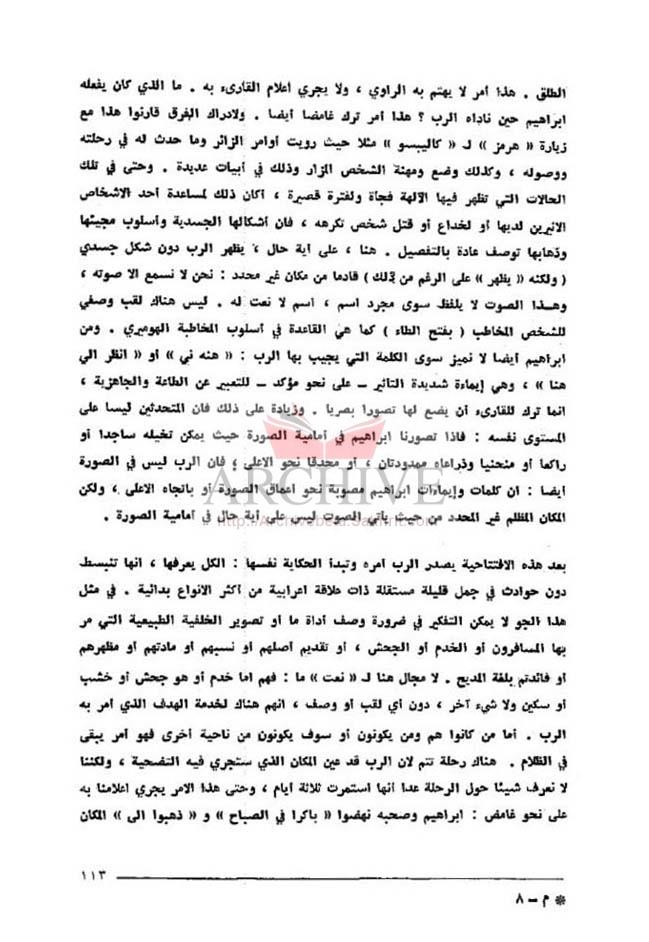 الطلق . هذا أمر لا يهتم به الراوي ، ولا يجري أعلام القارىء به . ما الذي كان يفعله
ابراهيم حين ناداه الرب ؟ هذا أمر ترك غامضا أيضا . ولادراك الفرق قارنوا هذا مع
زيارة « هرمز » لـ « كاليبسو » مثلا حيث رويت أوامر الزائر وما حدث له في رحلته
ووصوله ، وكذلك وضع ومهنة الشخص المزار وذلك في أبيات عديدة . وحتى في تلك
الحالات التي تظهر فيها الآلهة فجأة ولفترة قصيرة ، أكان ذلك لمساعدة أحد الاشخاص
الاثيرين لديها أو لخداع أو قتل شخص تكرهه ، فان أشكالها الجسدية وأسلوب مجيئها
وذهابها توصف عادة بالتفصيل . هنا ، على أية حال ، يظهر الرب دون شكل جسدي
( ولكنه « يظهر » على الرغم من ذلك ) قادما من مكان غير محدد : نحن لا نسمع الا صوته ،
وهذا الصوت لا يلفظ سوى مجرد اسم ، اسم لا نعت له . ليس هناك لقب وصفي
للشخص المخاطب ( بفتح الطاء ) كما هي القاعدة في أسلوب المخاطبة الهوميري . ومن
ابراهيم أيضا لا نميز سوى الكلمة التي يجيب بها الرب : « هنه ني » أو « انظر الي
هنا » ، وهي إيماءة شديدة التأثير ــ على نحو مؤكد ــ للتعبير عن الطاعة والجاهزية ،
انما ترك للقارىء أن يضع لها تصورا بصريا . وزيادة على ذلك فان المتحدثين ليسا على
المستوى نفسه : فاذا تصورنا ابراهيم في أمامية الصورة حيث يمكن تخيله ساجدا أو
راكعا أو منحنيا وذراعاه ممدودتان ، أو محدقا نحو الاعلى ، فان الرب ليس في الصورة
أيضا : ان كلمات وإيماءات ابراهيم مصوبة نحو أعماق الصورة أو باتجاه الاعلى ، ولكن
المكان المظلم غير المحدد من حيث يأتي الصوت ليس على أية حال في أمامية الصورة .
ARCHIVE
http://Archivebeta.Sakhrit.com
بعد هذه الافتتاحية يصدر الرب أمره وتبدأ الحكاية نفسها : الكل يعرفها ، انها تنبسط
دون حوادث في جمل قليلة مستقلة ذات علاقة اعرابية من أكثر الانواع بدائية . في مثل
هذا الجو لا يمكن التفكير في ضرورة وصف أداة ما أو تصوير الخلفية الطبيعية التي مر
بها المسافرون أو الخدم أو الجحش ، أو تقديم أصلهم أو نسبهم أو مادتهم أو مظهرهم
أو فائدتم بلغة المديح . لا مجال هنا لـ « نعت » ما : فهم اما خدم أو هو جحش أو خشب
أو سكين ولا شيء آخر ، دون أي لقب أو وصف ، انهم هناك لخدمة الهدف الذي أمر به
الرب . أما من كانوا هم ومن يكونون أو سوف يكونون من ناحية أخرى فهو أمر يبقى
في الظلام . هناك رحلة تتم لان الرب قد عين المكان الذي ستجري فيه التضحية ، ولكننا
لا نعرف شيئا حول الرحلة عدا أنها استمرت ثلاثة أيام ، وحتى هذا الامر يجري اعلامنا به
على نحو غامض : ابراهيم وصحبه نهضوا « باكرا في الصباح » و « ذهبوا الى » المكان
١١٣
* م – ٨